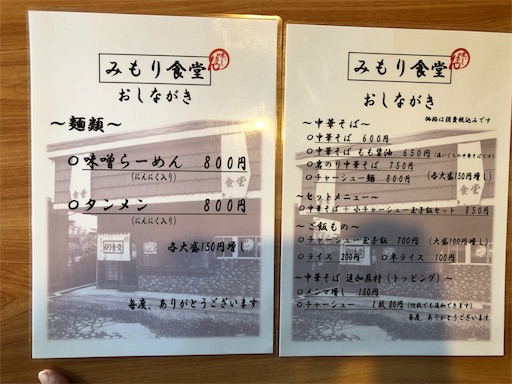 みもり食堂
おしながき
～麺類～
○味噌らーめん 800円
(にんにく入り)
○タンメン 800円
(にんにく入り)
各大盛150円増し
毎度、ありがとうございます
みもり食堂
おしながき
価格は消費税込みです
～中華そば～
○中華そば 600円
○中華そば もも醤油 650円
○岩のり中華そば 750円
○チャーシュー麺 800円
(各大盛150円増し)
～セットメニュー～
○中華そば + 小チャーシュー玉子飯セット 850円
～ご飯もの～
○チャーシュー玉子飯 700円 (大盛100円増し)
○ライス 200円 ○半ライス 100円
～中華そば 追加具材(トッピング)～
○メンマ増し 180円
○チャーシュー 1枚80円(何枚でも追加できます)
毎度、ありがとうございます
食堂
みもり食堂
食堂